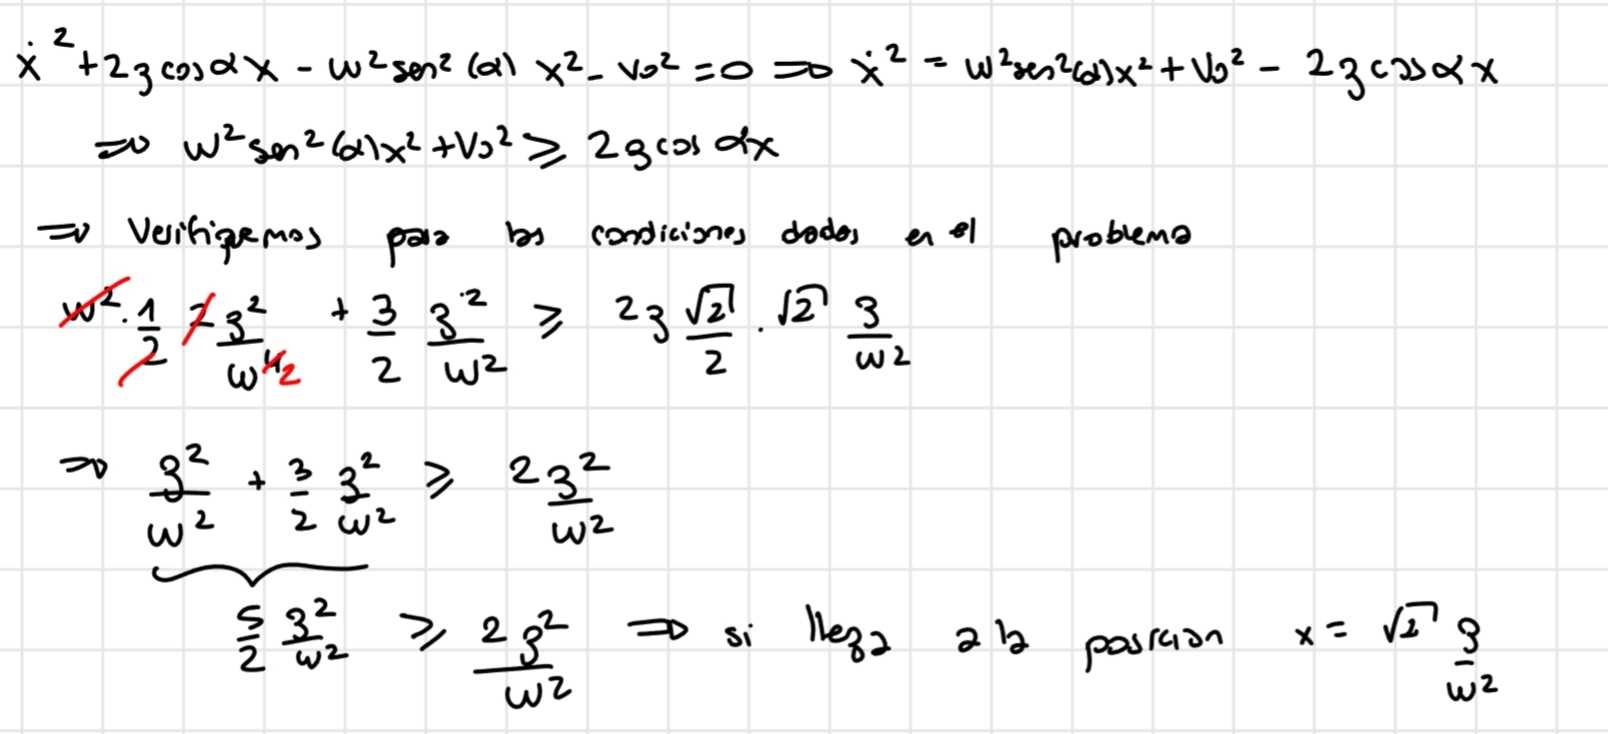 ẋ² + 2g cos α x - w² sen²(α) x² - v₀² = 0 ⇒ ẋ² = w² sen²(α) x² + V₀² - 2g cos α x
⇒ w² sen²(α) x² + V₀² ≥ 2g cos α x
⇒ Verifiquemos para las condiciones dadas en el problema
w² · 1/2 · 2 g²/w⁴ 2 + 3/2 g²/w² ≥ 2g √2/2 · √2 g/w²
⇒ g²/w² + 3/2 g²/w² ≥ 2g²/w²
5/2 g²/w² ≥ 2g²/w² ⇒ si llega a la posicion x = √2 g/w²